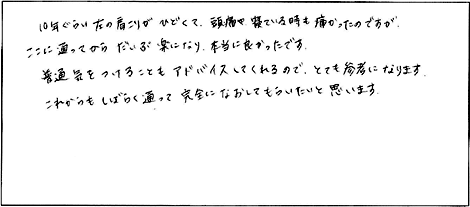 10年ぐらい左の肩こりがひどくて、頭痛や寝ている時も痛かったのですが、
ここに通ってからだいぶ楽になり、本当に良かったです。
普通気をつけることもアドバイスしてくれるので、とても参考になります。
これからもしばらく通って完全になおしてもらいたいと思います。